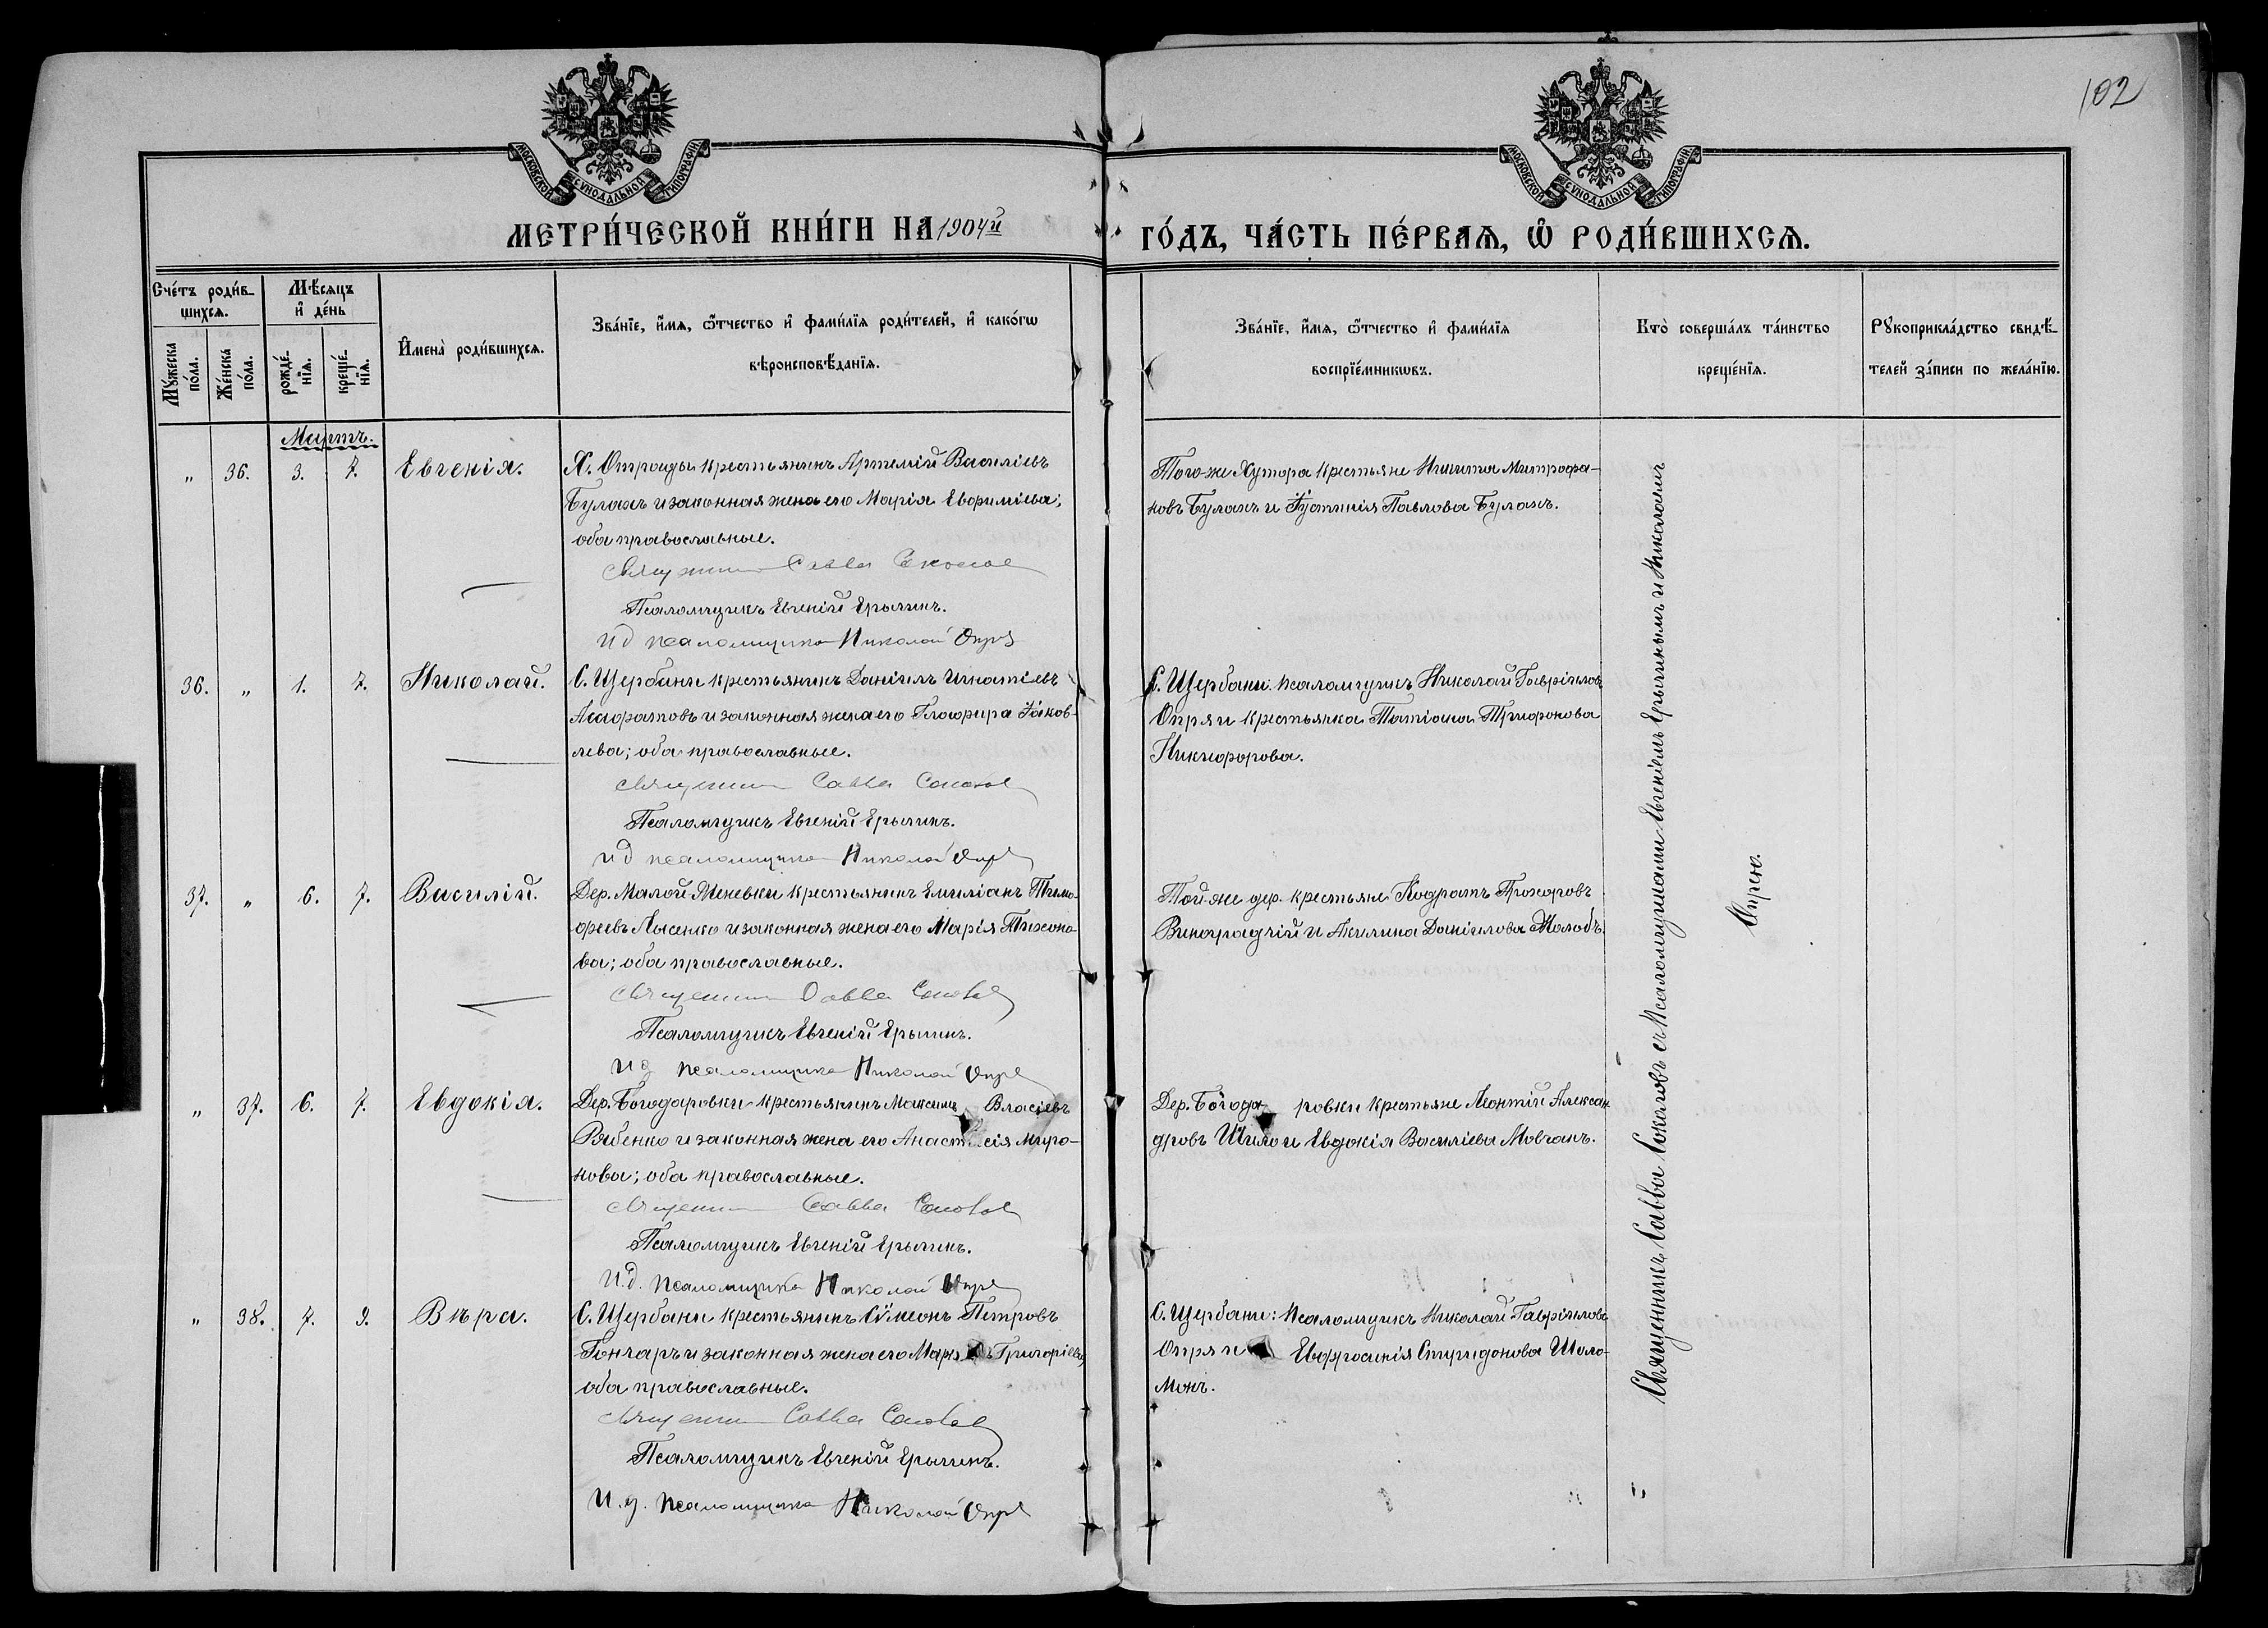 102
МОСКОВСКОЙ СѴНОДАЛЬНОЙ ТИПОГРАФІИ
МОСКОВСКОЙ СѴНОДАЛЬНОЙ ТИПОГРАФІИ
МЕТРИ́ЧЕСКОЙ КНИ́ГИ НА 1904й
ГО́ДЪ, ЧА́СТЬ ПЕ́РВАѦ, Ѡ РОДИ́ВШИХСѦ.
Сче́тъ роди́в-
шихсѧ.
Мѣ́сѧцъ
и҆ де́нь
Мꙋ́жеска
по́ла.
Же́нска
по́ла.
рожде́-
нїѧ.
креще́-
нїѧ.
И҆мена̀ роди́вшихсѧ.
Зва́нїе, и҆́мѧ, ѻ҆́тчество и҆ фами́лїѧ роди́телей, и҆ како́гѡ
вѣроисповѣ́данїѧ.
Зва́нїе, и҆́мѧ, ѻ҆́тчество и҆ фами́лїѧ
воспрїе́мникѡвъ.
Кто̀ соверша́лъ та́инство
креще́нїѧ.
Рꙋкоприкла́дство свидѣ́-
телей за́писи по жела́нїю.
Мартъ.
„ 36. 3. 7. Евгенія.
Х. Отрады крестьянинъ Артемій Василіевъ
Булахъ и законная жена его Марія Евфиміева;
оба православные.
Священник Савва Соколов
Псаломщикъ Евгеній Ерыгинъ.
И д псаломщика Николай Опря
Того-же Хутора крестьяне Никита Митрофа-
новъ Булахъ и Павлова Булахъ.
36. „ 1. 7. Николай.
С. Щербани крестьянинъ Даніилъ Игнатіевъ
и законная жена его Глафира Іаков-
лева; оба православные.
Священник Савва Соколов
Псаломщикъ Евгеній Ерыгинъ.
И д псаломщика Николай Опря
С. Щербани: псаломщикъ Николай Гавріиловъ
Опря и крестьянка Татіана Трифонова
Никифорова.
37. „ 6. 7. Василій.
Дер. Малой крестьянинъ Емиліанъ Тимо-
феевъ Лысенко и законная жена его Марія Тихоно-
ва; оба православные.
Священник Савва Соколов
Псаломщикъ Евгеній Ерыгинъ.
И д псаломщика Николай Опря
Той-же дер. крестьяне Кодратъ Прохоровъ
Виноградчій и Акилина Даніилова
„ 37. 6. 7. Евдокія.
Дер. Богодаровки крестьянинъ Максимъ Власіевъ
Рябенко и законная жена его Анастасія Миро-
нова; оба православные.
Священник Савва Соколов
Псаломщикъ Евгеній Ерыгинъ.
И.д. псаломщика Николай Опря
Дер. Богода ровки крестьяне Леонтій Алексан-
дровъ Шило и Евдокія Василіева Мовчанъ.
„ 38. 7. 9. Вѣра.
С. Щербани крестьянинъ Сѵмеонъ Петровъ
Гончаръ и законная жена его Марія Григоріева,
оба православные.
Священник Савва Соколов
Псаломщикъ Евгеній Ерыгинъ.
И.д. псаломщика Николай Опря
С. Щербани: псаломщикъ Николай Гавріиловъ
Опря и Евфросинія Спиридонова Шоло-
монъ.
Священникъ Савва Соколовъ съ псаломщиками Евгеніемъ Ерыгинымъ и Николаемъ
Опрею.